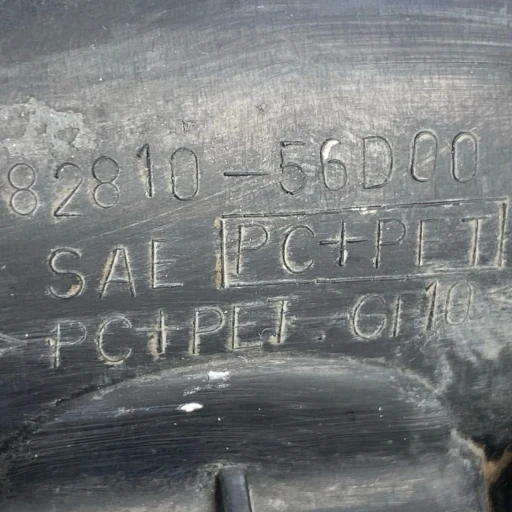 82810-56D00
SAE PC+PET
>PC+PET.GF10<